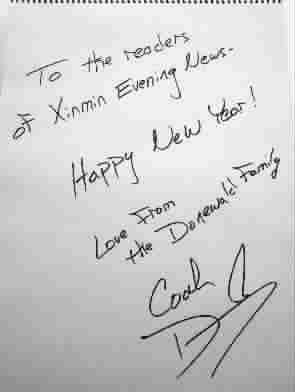 To the readers
of Xinmin Evening News-
Happy New Year!
Love From
the Donewald Family
Coach